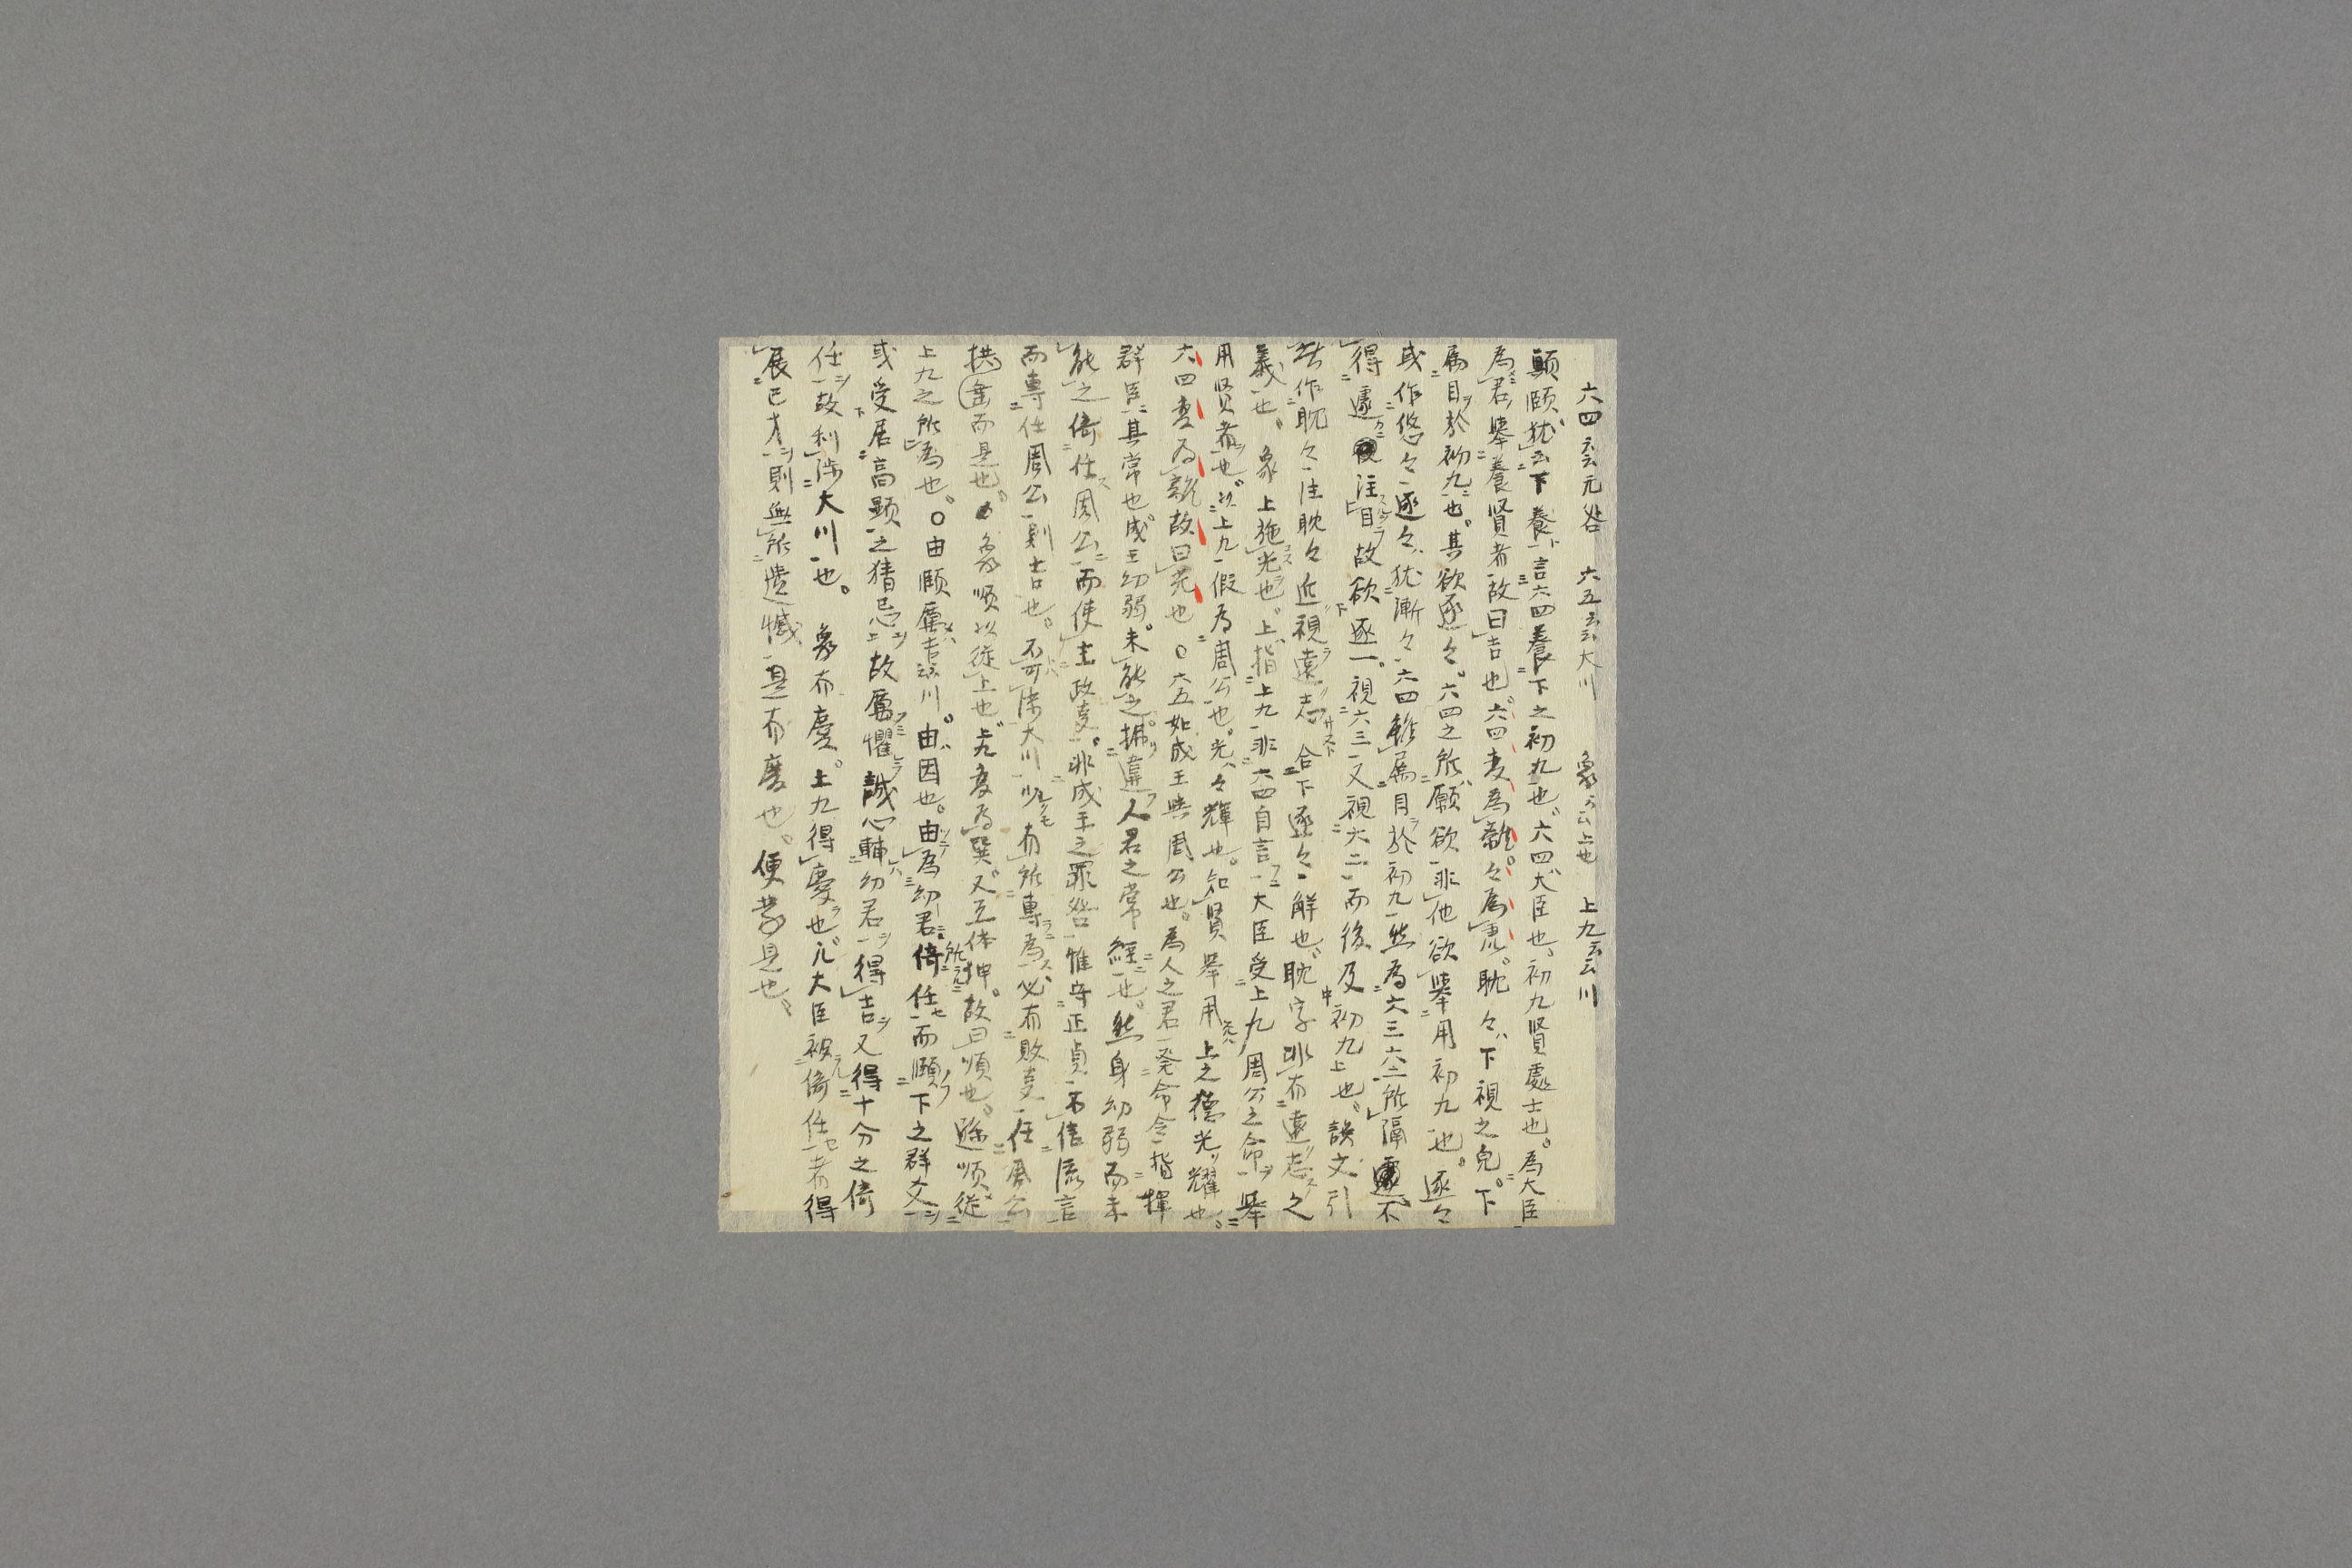 六四云云元咎 六五云云大川 象云云上也 上九云云川
顛頤猶云下養一言六四養下之初九也六四大臣也初九賢處士也為大臣
為君舉養賢者故曰吉也六四変為離々為虎耽々下視之皃下
屬目於初九也其欲逐々六四之所願欲一非他欲舉用初九也逐々
或作悠々逐々猶漸々六四雖屬目於初九然為六三六二所隔遽不
得遽注目故欲逐一視六三又視六二而後及初九上也說文引
作耽々注耽々近視遠志合下逐々解也耽字非有遠志之
義也象上施光也上指上九非六四自言大臣受上九周公之命舉
用賢者也以上九假為周公也光々輝也知賢舉用上之德光耀也
六四変為離故曰光也〇六五如成王與周公也為人之君一発命令指揮
群臣其常也成王幼弱未能之拂違人君之常經也然身幼弱而未
能之倚任周公而使主政変非成王之罪咎惟守正貞不信流言
而專任周公則吉也不可涉大川少有所專為必有敗変任周公
拱而是也象順以從上也上九変為巽又互体坤故曰順也遜順從
上九之所為也〇由頤厲吉川由因也由為幼君倚任而頤下之群爻
或受居高顕之猜忌故厲懼誠心輔幼君得吉又得十分之倚
任故利涉大川也 象有慶上九得慶也凡大臣被倚任者得
展己才則無所遺憾是有慶也便蒙是也